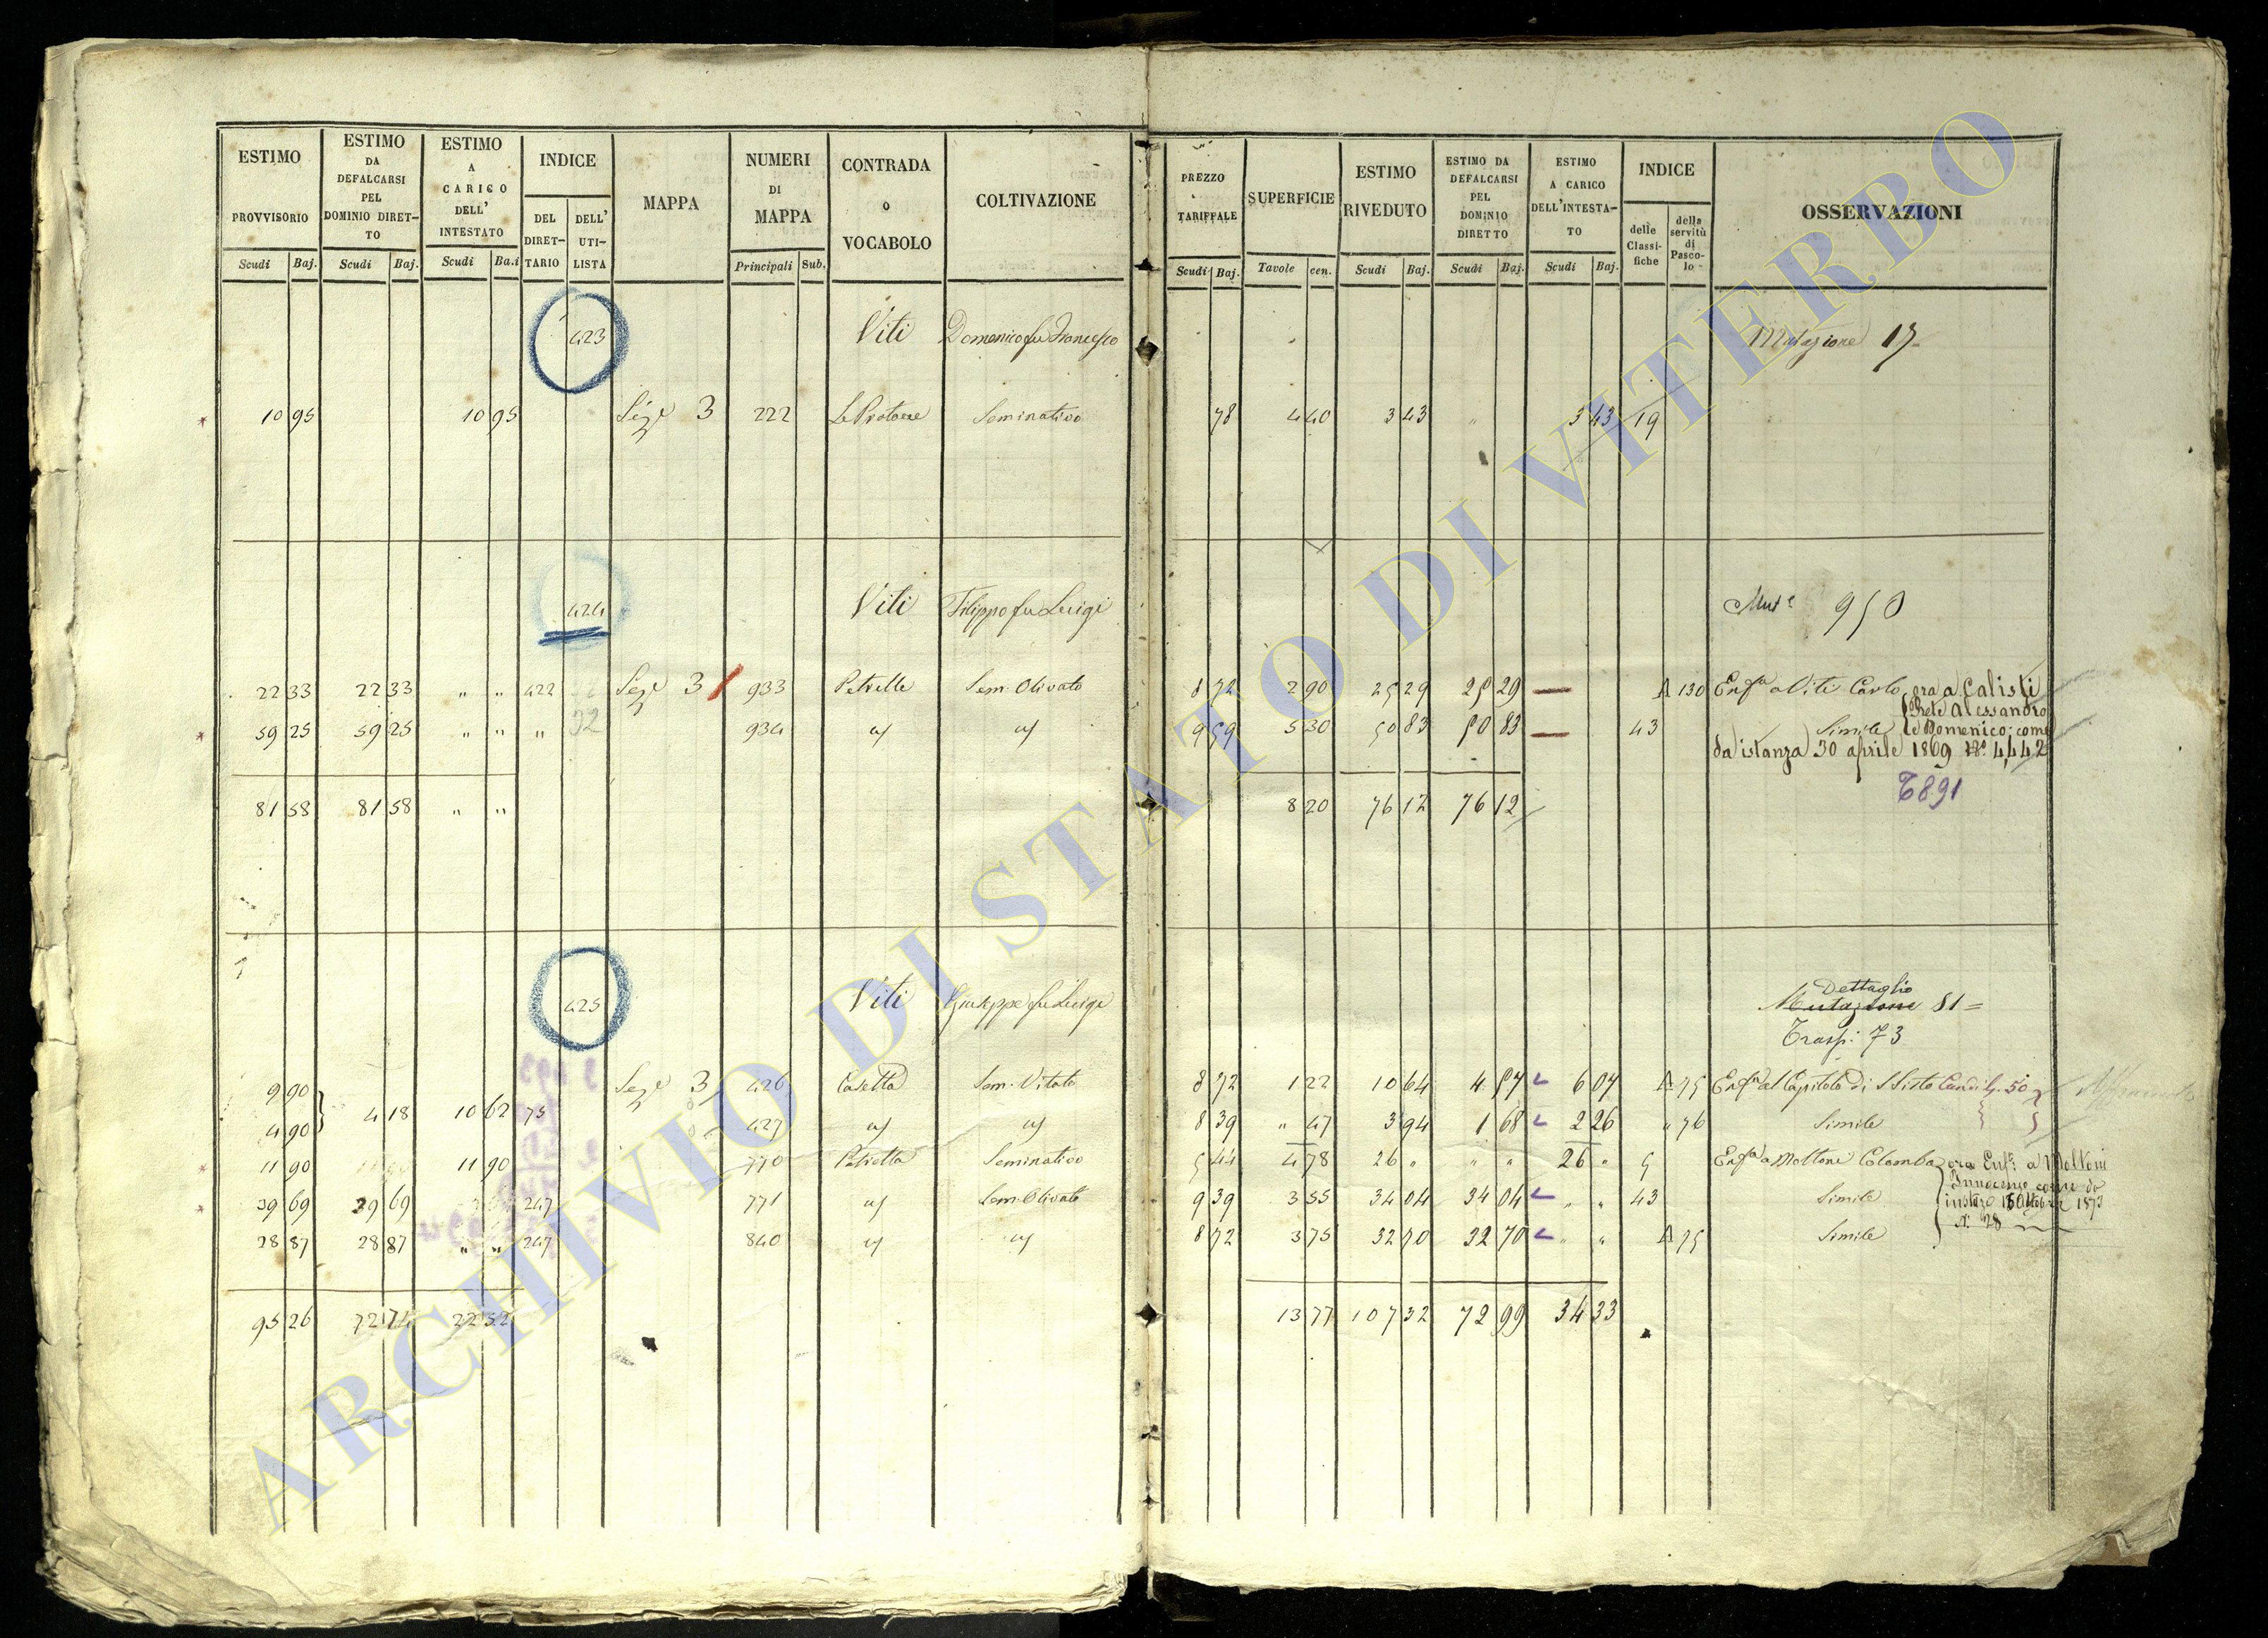 ESTIMO PROVVISORIO Scudi Baj.
ESTIMO DA DEFALCARSI PEL DOMINIO DIRETTO Scudi Baj.
ESTIMO A CARICO DELL' INTESTATO Scudi Ba.i
INDICE DEL DIRETTARIO DELL' UTILISTA
MAPPA
NUMERI DI MAPPA Principali Sub.
CONTRADA O VOCABOLO
COLTIVAZIONE
PREZZO TARIFFALE Scudi Baj.
SUPERFICIE Tavole cen.
ESTIMO RIVEDUTO Scudi Baj.
ESTIMO DA DEFALCARSI PEL DOMINIO DIRETTO Scudi Baj.
ESTIMO A CARICO DELL'INTESTATO Scudi Baj.
INDICE delle Classifiche della servitù di Pascolo
OSSERVAZIONI
423 Viti Domenico fu Francesco Mutazione 17
10 95 10 95 Sez.e 3 222 Seminativo 78 4 40 3 43 " 3 43 19
424 Viti Filippo fu Luigi Mut.e 950
22 33 22 33 " " 422 Sez.e 3 933 Petrelle Sem. Olivato 8 72 2 90 25 29 25 29 — A 130 Enf.a a Viti Carlo ora a Calisti
Prete Alessandro
59 25 59 25 " " " 934 " " 9 59 5 30 50 83 50 83 — 43 Simile e Domenico: come
da istanza 30 aprile 1869 N.° 4,442
T891
81 58 81 58 " " 8 20 76 12 76 12
425 Viti Giuseppe fu Luigi Dettaglio
Mutazione 81 =
Trasp: 73
9 90 Sez.e 3 426 Casetta Sem. Vitato 8 72 1 22 10 64 4 57 6 07 A 75 Enf.a al Capitolo di S. Sisto
4 18 10 62 75
4 90 427 " " 8 39 " 47 3 94 1 68 2 26 " 76 Simile
11 90 11 90 770 Petrella Seminativo 5 44 4 78 26 " " " 26 " 5 Enf.a a Moltoni Colomba ora Enf.i a Moltoni
Innocenzo come da
39 69 39 69 247 771 " Sem. Olivato 9 39 3 55 34 04 34 04 " " 43 Simile
28 87 28 87 " " 247 840 " " 8 72 3 75 32 70 32 70 " " A 75 Simile N. 28
95 26 72 74 22 52 13 77 107 32 72 99 34 33
ARCHIVIO DI STATO DI VITERBO